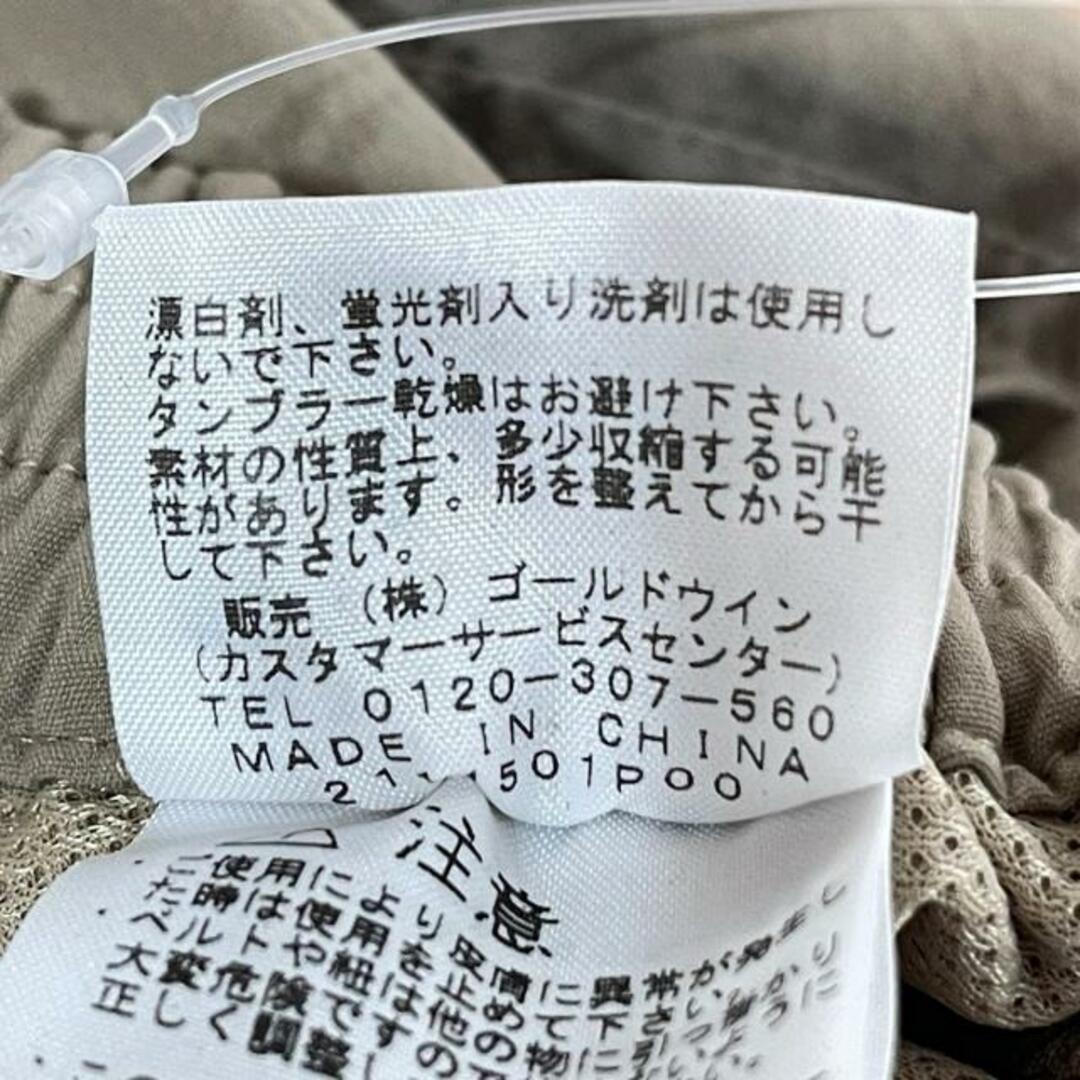 漂白剤、蛍光剤入り洗剤は使用し
ないで下さい。
タンブラー乾燥はお避け下さい。
素材の性質上、多少収縮する可能
性があります。形を整えてから干
して下さい。
販売 (株) ゴールドウイン
(カスタマーサービスセンター)
TEL 0120-307-560
MADE IN CHINA
501P00
注意
ご使用により皮膚に異常が発生し
た時は使用を止めて下さい。
ベルトや紐は他の物に引っ掛かり
大変危険です
正しく調整し